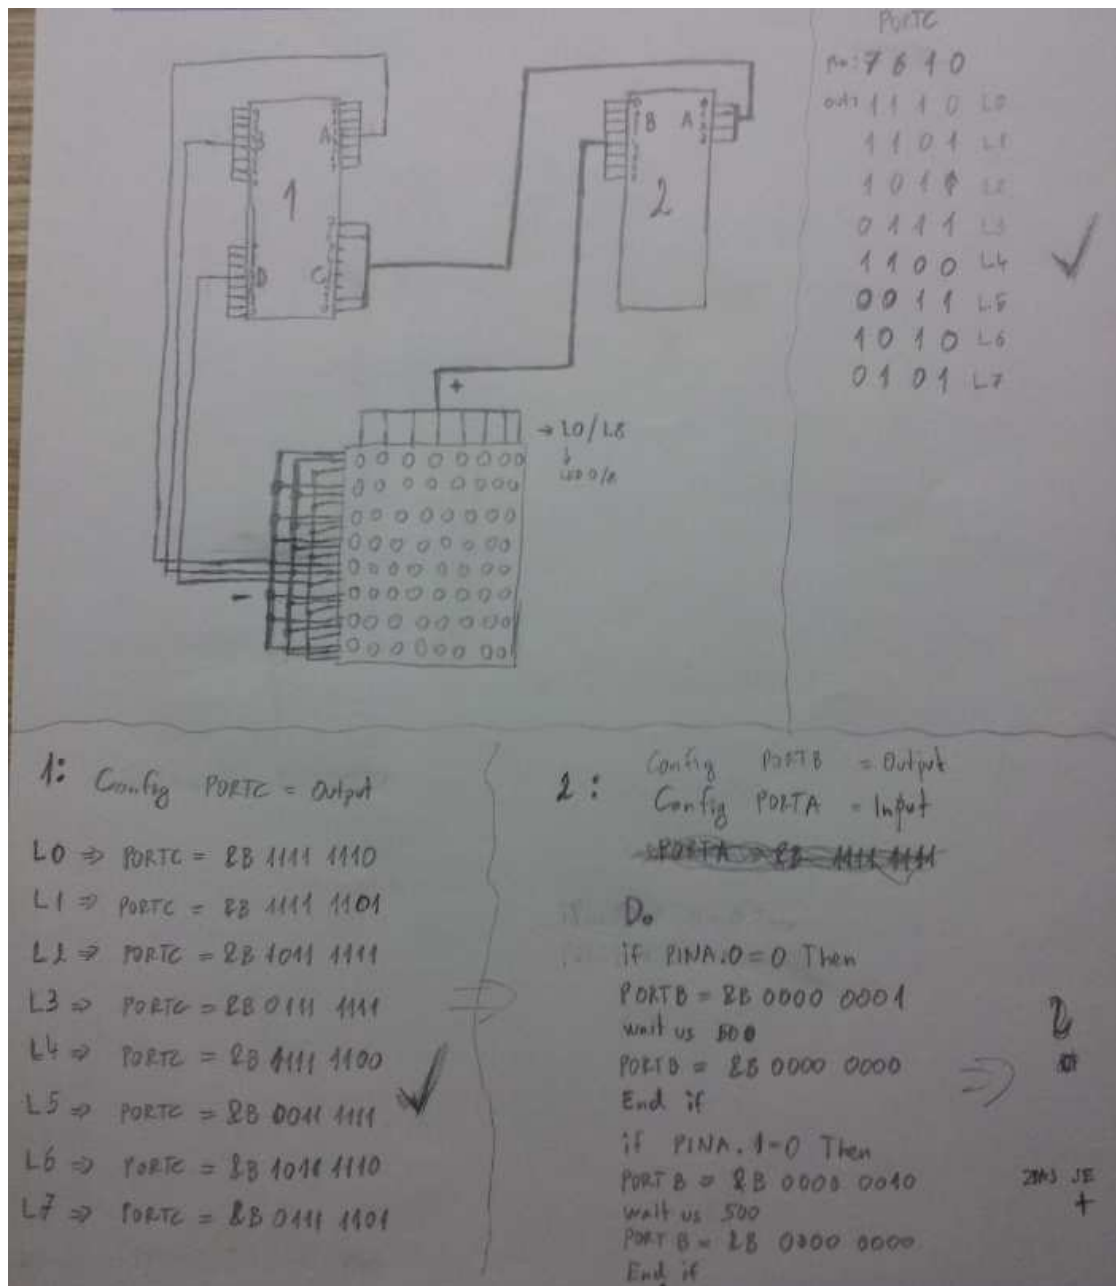 PORTC
Pin: 7 6 1 0
out: 1 1 1 0 L0
1 1 0 1 L1
1 0 1 1 L2
0 1 1 1 L3
1 1 0 0 L4
0 0 1 1 L5
1 0 1 0 L6
0 1 0 1 L7
A
1
D
C
B A
2
+
→ L0/L8
↓
LED 0/8
-
1: Config PORTC = Output
L0 ⇒ PORTC = &B 1111 1110
L1 ⇒ PORTC = &B 1111 1101
L2 ⇒ PORTC = &B 1011 1111
L3 ⇒ PORTC = &B 0111 1111
L4 ⇒ PORTC = &B 1111 1100
L5 ⇒ PORTC = &B 0011 1111
L6 ⇒ PORTC = &B 1011 1110
L7 ⇒ PORTC = &B 0111 1101
2: Config PORTB = Output
Config PORTA = Input
PORTA = &B 1111 1111
Do
if PINA.0=0 Then
PORTB = &B 0000 0001
wait us 500
PORTB = &B 0000 0000
End if
if PINA.1=0 Then
PORTB = &B 0000 0010
wait us 500
PORTB = &B 0000 0000
End if
2
JE
+